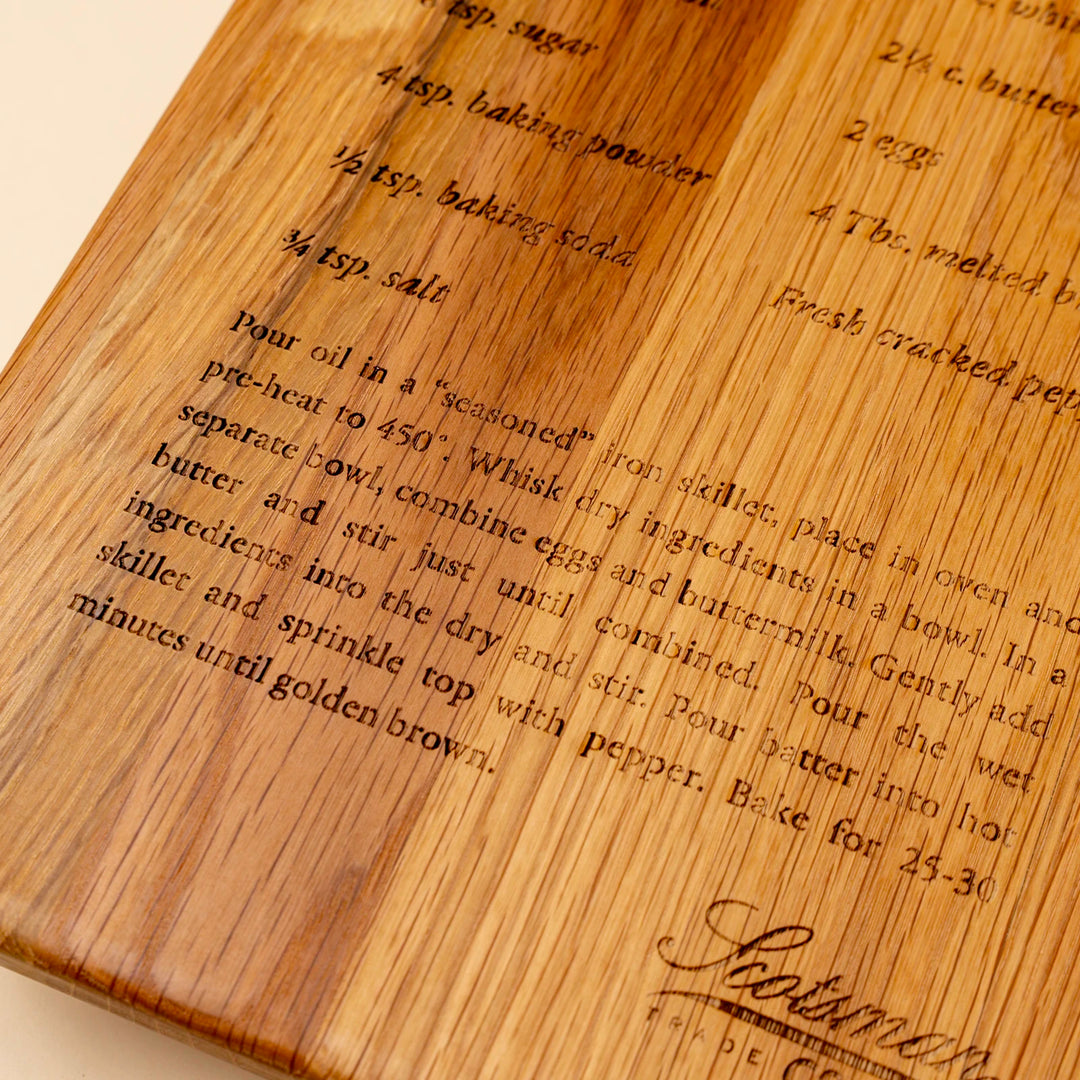 tsp. sugar
4 tsp. baking powder
½ tsp. baking soda
¾ tsp. salt
2 eggs
4 Tbs. melted
Fresh cracked
Pour oil in a “seasoned” iron skillet, place in oven and
pre-heat to 450°. Whisk dry ingredients in a bowl. In a
separate bowl, combine eggs and buttermilk. Gently add
butter and stir just until combined. Pour the wet
ingredients into the dry and stir. Pour batter into hot
skillet and sprinkle top with pepper. Bake for 25-30
minutes until golden brown.
Scotsman
TRADE